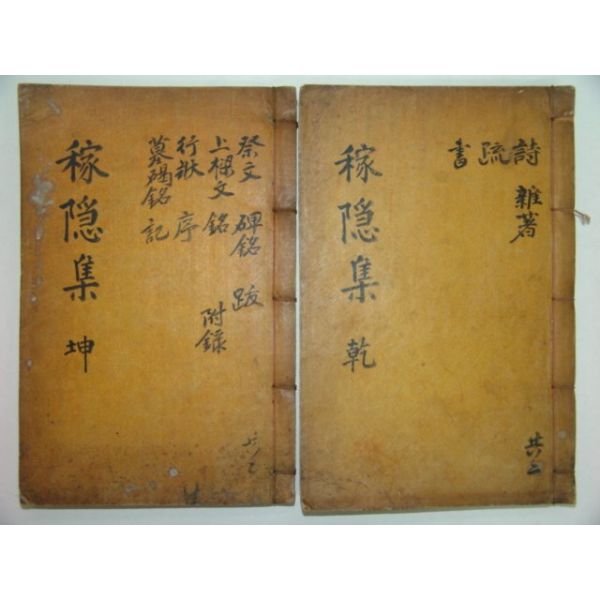 詩 雜著
疏
書
稼隐集 乾
共二
祭文 碑銘 跋
上樑文 銘 附錄
行狀 序
墓碣銘 記
稼隐集 坤